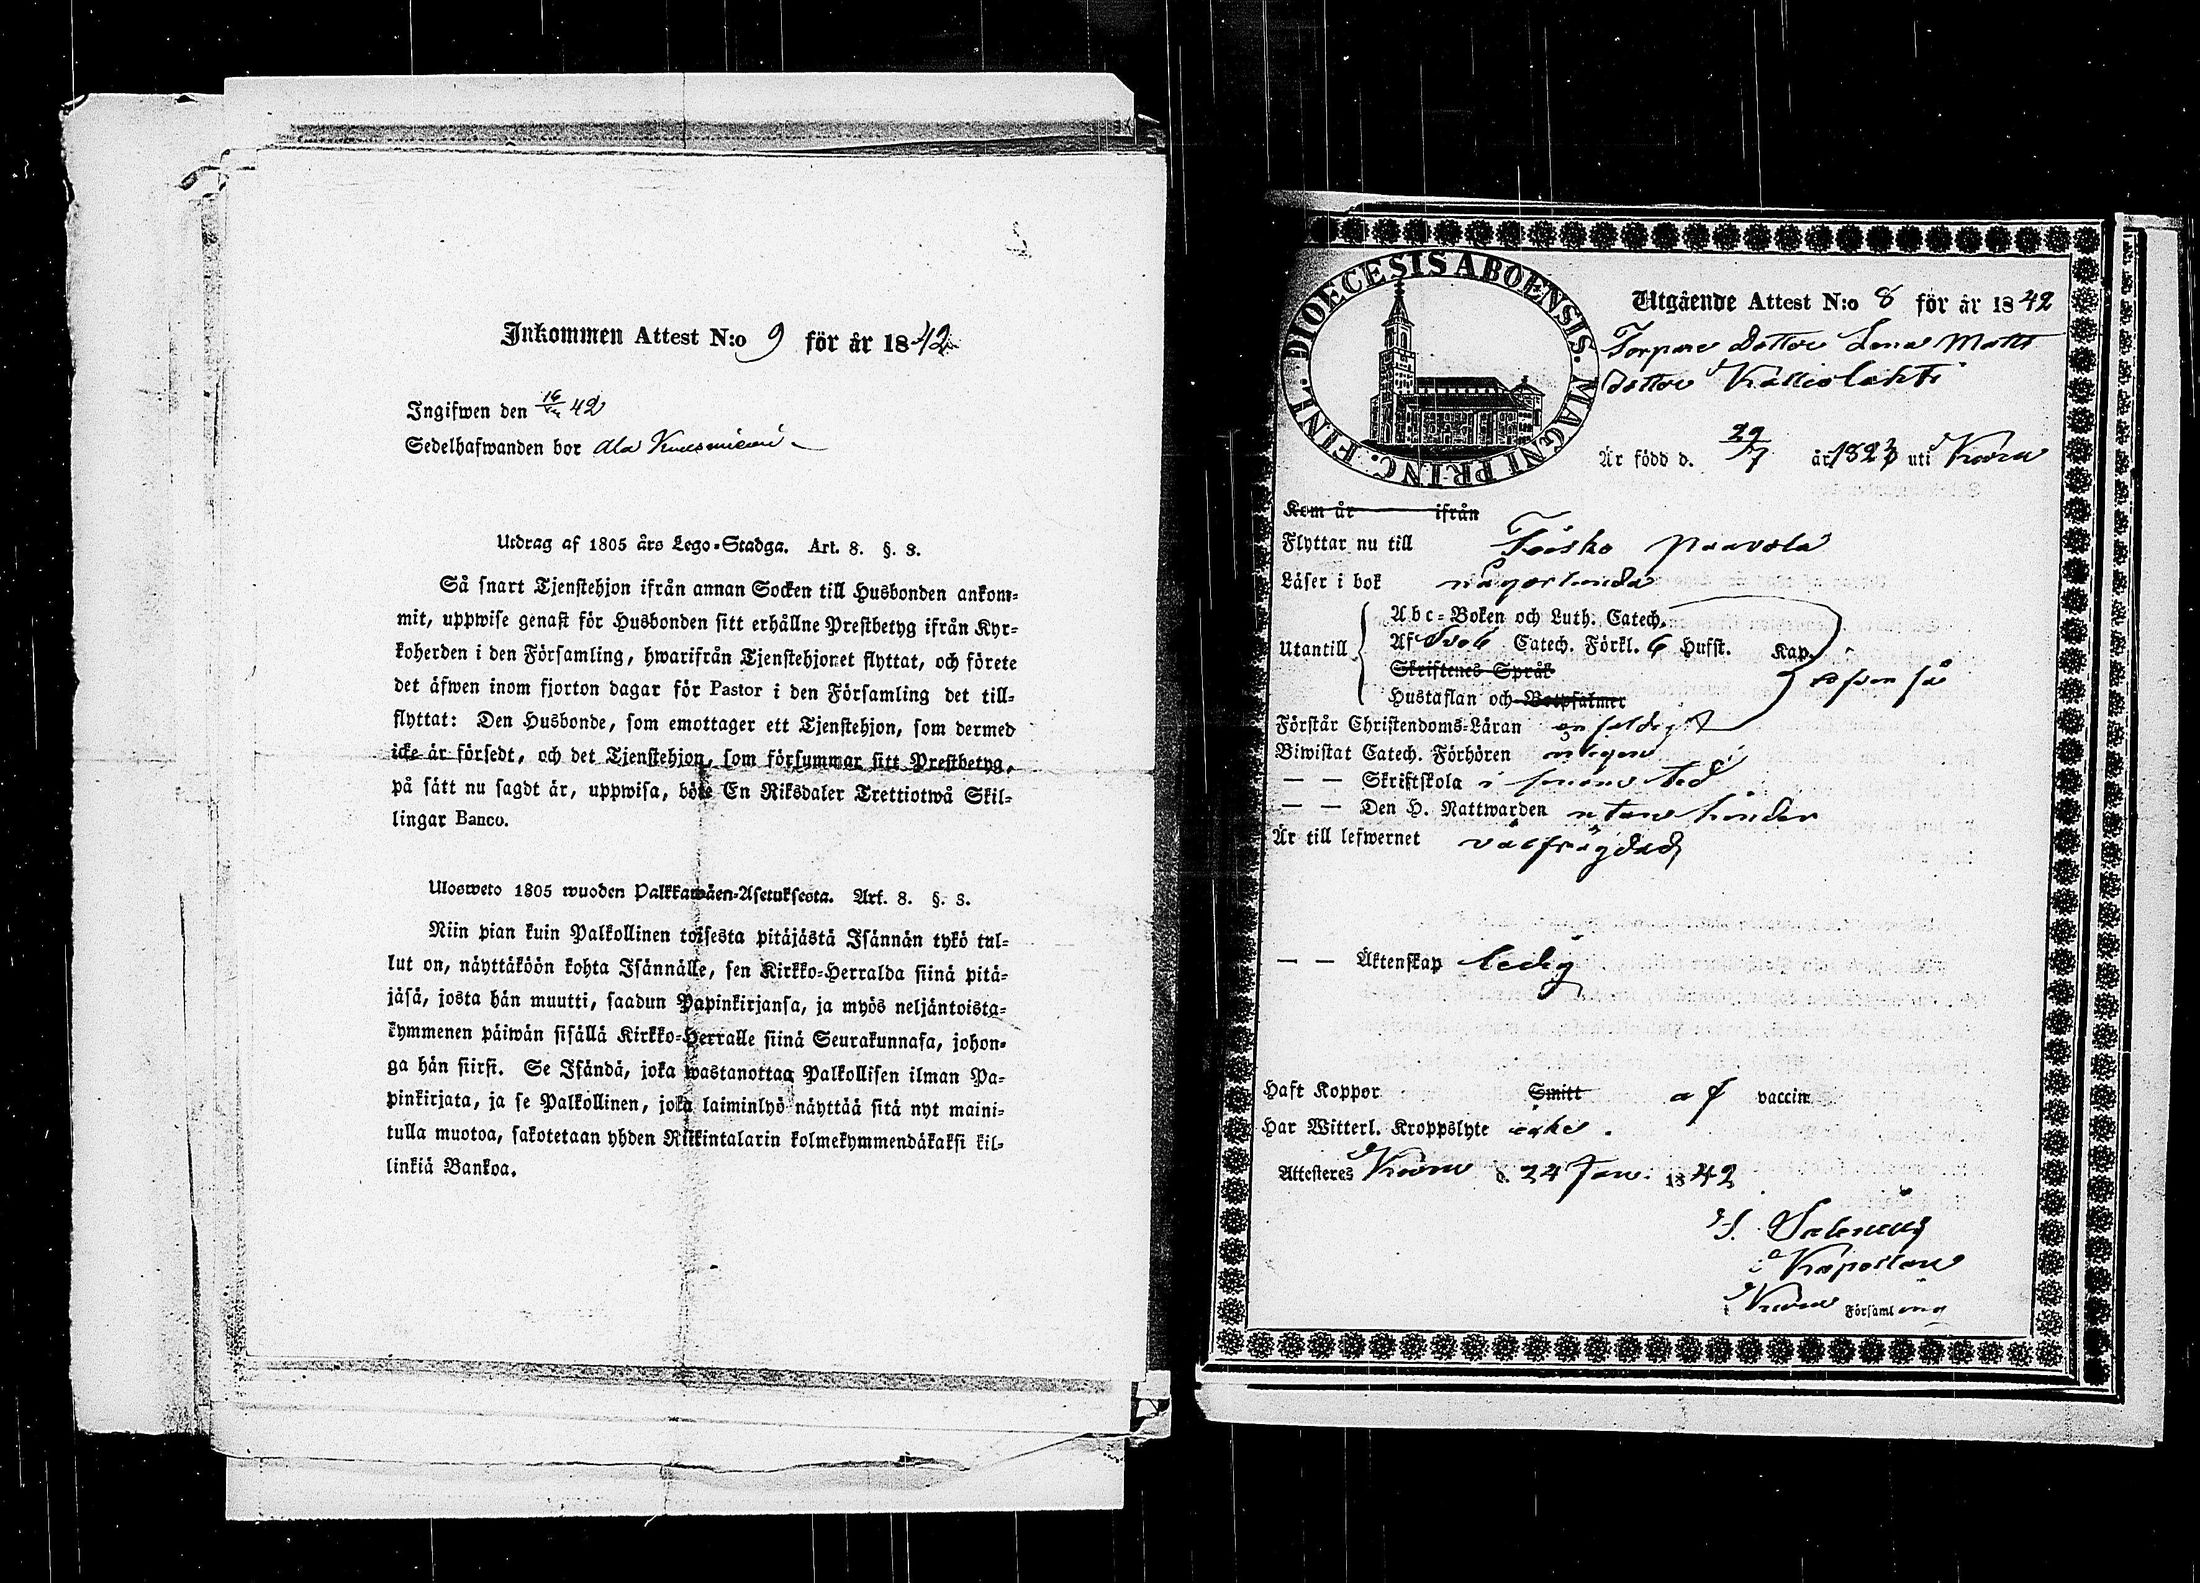 Inkommen Attest N:o 9 för år 1842
Ingifwen den 16/ 42
Sedelhafwanden bor Ala
Utdrag af 1805 års Lego-Stadga. Art. 8. §. 3.
Så snart Tjenstehjon ifrån annan Socken till Husbonden ankom-
mit, uppwise genast för Husbonden sitt erhållne Prestbetyg ifrån Kyr-
koherden i den Församling, hwarifrån Tjenstehjonet flyttat, och förete
det äfwen inom fjorton dagar för Pastor i den Församling det till-
flyttat: Den Husbonde, som emottager ett Tjenstehjon, som dermed
icke är försedt, och det Tjenstehjon, som försummar sitt Prestbetyg,
på sätt nu sagdt är, uppwisa, böte En Riksdaler Trettiotwå Skil-
lingar Banco.
Ulosweto 1805 wuoden Palkkawäen-Asetuksesta. Art. 8. §. 3.
Niin pian kuin Palkollinen toisesta pitäjästä Isännän tykö tul-
lut on, näyttäköön kohta Isännälle, sen Kirkko-Herralda siinä pitä-
jäsä, josta hän muutti, saadun Papinkirjansa, ja myös neljäntoista-
kymmenen päiwän sisällä Kirkko-Herralle siinä Seurakunnasa, johon-
ga hän siirsi. Se Isändä, joka wastanottaa Palkollisen ilman Pa-
pinkirjata, ja se Palkollinen, joka laiminlyö näyttää sitä nyt maini-
tulla muotoa, sakotetaan yhden Riikintalarin kolmekymmendäkaksi kil-
linkiä Bankoa.
DIOECESIS ABOENSIS. MAGNI PRINC. FINL.
Utgående Attest N:o 8 för år 1842
Torpare Dotter Lena Matts
dotter Kalliolahti
Är född d. 29/7 år 1823 uti
Kom år ifrån
Flyttar nu till Töisko Paavola
Läser i bok någorlunda
Utantill
Abc-Boken och Luth. Catech.
Af Sveb Catech. Förkl. 6 Hufst. Kap.
Skriftenes Språk
Hustaflan och Botpsalmer
äfven så
Förstår Christendoms-Läran enfaldigt
Biwistat Catech. Förhören
— — Skriftskola i sinom tid
— — Den H. Nattwarden utan hinder
Är till lefwernet välfrägdad
— — Äktenskap ledig
Haft Koppor Smitt af vaccin
Har Witterl. Kroppslyte icke.
Attesteres d. 24 Jan. 1842
Kapellan
i Församling